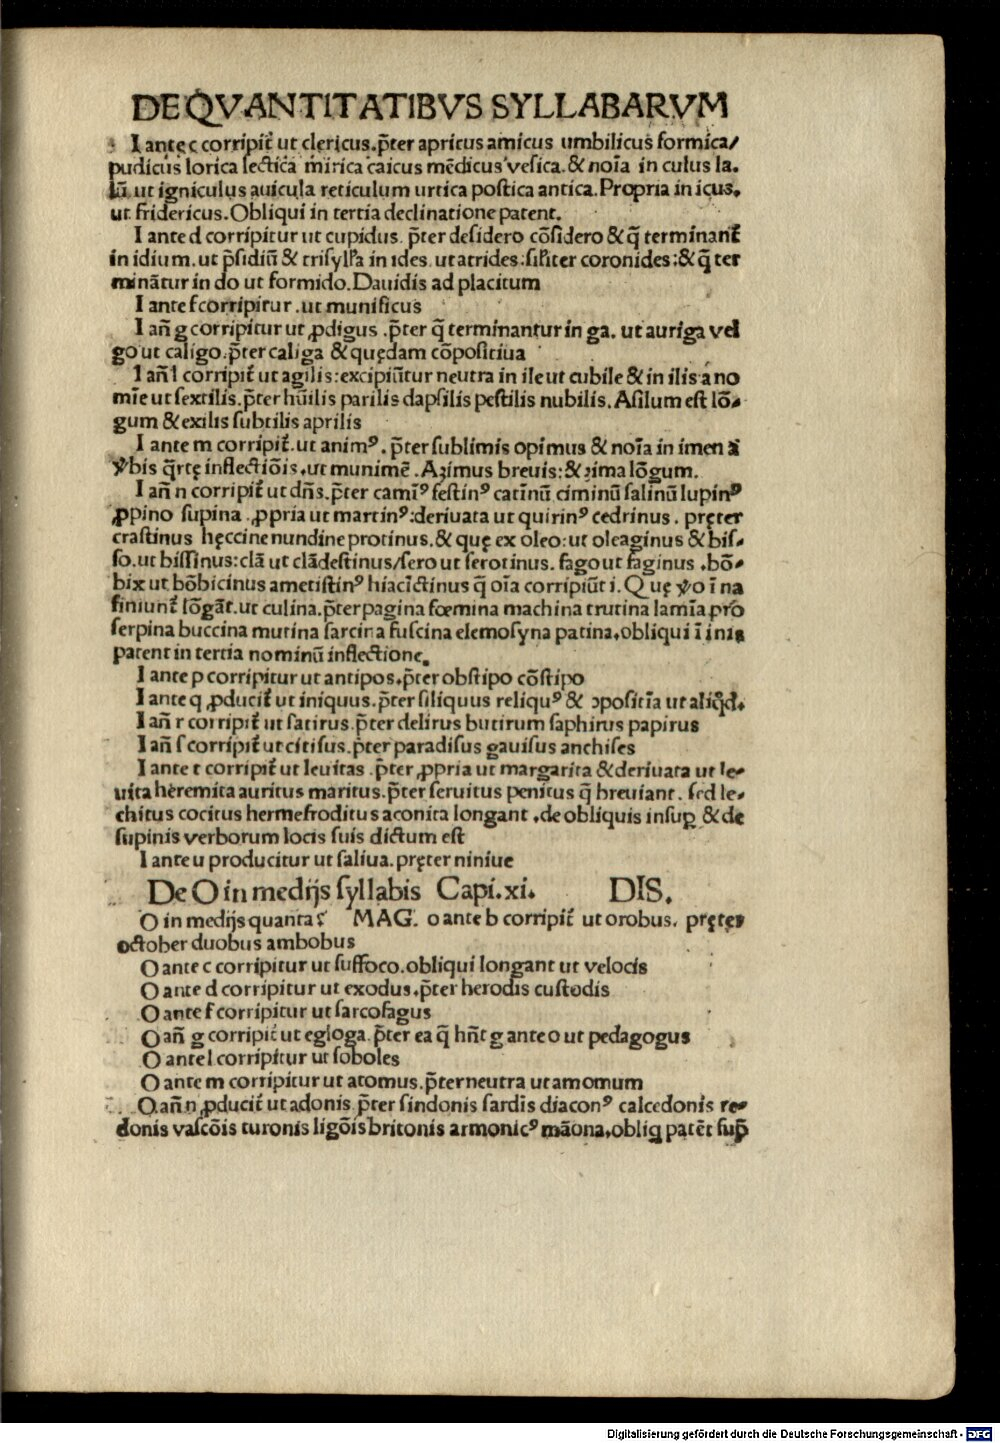 DE QVANTITATIBVS SYLLABARVM
I ante c corripit᷑ ut clericus. p̄ter apricus amicus umbilicus formica/
pudicus lorica lectica mirica caicus mēdicus vesica. & noīa in culus la.
lū. ut igniculus auicula reticulum urtica postica antica. Propria in icus.
ut fridericus. Obliqui in tertia declinatione patent.
I ante d corripitur ut cupidus. p̄ter desidero cōsidero & q̄ terminant᷑
in idium. ut p̄sidiū & trisylła in ides. ut atrides: siłiter coronides: & q̄ ter
minātur in do ut formido. Dauidis ad placitum
I ante f corripitur . ut munificus
I añ g corripitur ut ꝓdigus . p̄ter q̄ terminantur in ga. ut auriga vel
go ut caligo. p̄ter caliga & quędam cōpositiua
I añ l corripit᷑ ut agilis: excipiūtur neutra in ile ut cubile & in ilis a no
mīe ut sextilis. p̄ter hūilis parilis dapsilis pestilis nubilis. Asilum est lō-
gum & exilis subtilis aprilis
I ante m corripit᷑. ut animꝰ. p̄ter sublimis opimus & noīa in imen a
ꝟbis q̄rtę inflectiōis. ut munimē. Azimus breuis: & zima lōgum.
I añ n corripit᷑ ut dn̄s. p̄ter camīꝰ festinꝰ catīnū ciminū salinū lupinꝰ
ꝓpino supina . ꝓpria ut martinꝰ: deriuata ut quirinꝰ cedrinus . pręter
crastinus hęccine nundine protinus. & quę ex oleo: ut oleaginus & bis-
so. ut bissinus: clā ut clādestinus/sero ut serotinus. fago ut faginus . bō-
bix ut bōbicinus ametistinꝰ hiacīctinus q̄ oīa corripiūt i. Quę ꝟo ī na
finiunt᷑ lōgāt. ut culina. p̄ter pagina fœmina machina trutina lamīa pro
serpina buccina mutina sarcina fuscina elemosyna patina. obliqui ī inis
patent in tertia nominū inflectione.
I ante p corripitur ut antipos. p̄ter obstipo cōstipo
I ante q ꝓducit᷑ ut iniquus. p̄ter siliquus reliquꝰ & ɔpositīa ut aliqͥd.
I añ r corripit᷑ ut satirus. p̄ter delirus butirum saphirus papirus
I añ s corripit᷑ ut citisus. p̄ter paradisus gauisus anchises
I ante t corripit᷑ ut leuitas . p̄ter ꝓpria ut margarita & deriuata ut le-
uita heremita auritus maritus. p̄ter seruitus penitus q̄ breuiant. sed le-
chitus cocitus hermefroditus aconita longant . de obliquis insup̱ & de
supinis verborum locis suis dictum est
I ante u producitur ut saliua. pręter niniue
De O in medijs syllabis Capi. xi. DIS.
O in medijs quanta? MAG. o ante b corripit᷑ ut orobus. pręter
october duobus ambobus
O ante c corripitur ut suffoco. obliqui longant ut velocis
O ante d corripitur ut exodus. p̄ter herodis custodis
O ante f corripitur ut sarcofagus
O añ g corripit᷑ ut egloga. p̄ter ea q̄ hn̄t g ante o ut pedagogus
O ante l corripitur ut soboles
O ante m corripitur ut atomus. p̄ter neutra ut amomum
O añ n ꝓducit᷑ ut adonis. p̄ter sindonis sardīs diaconꝰ calcedonis re-
donis vascōis turonis ligōis britonis armonicꝰ māona. obliq patēt sup̄
Digitalisierung gefördert durch die Deutsche Forschungsgemeinschaft - DFG